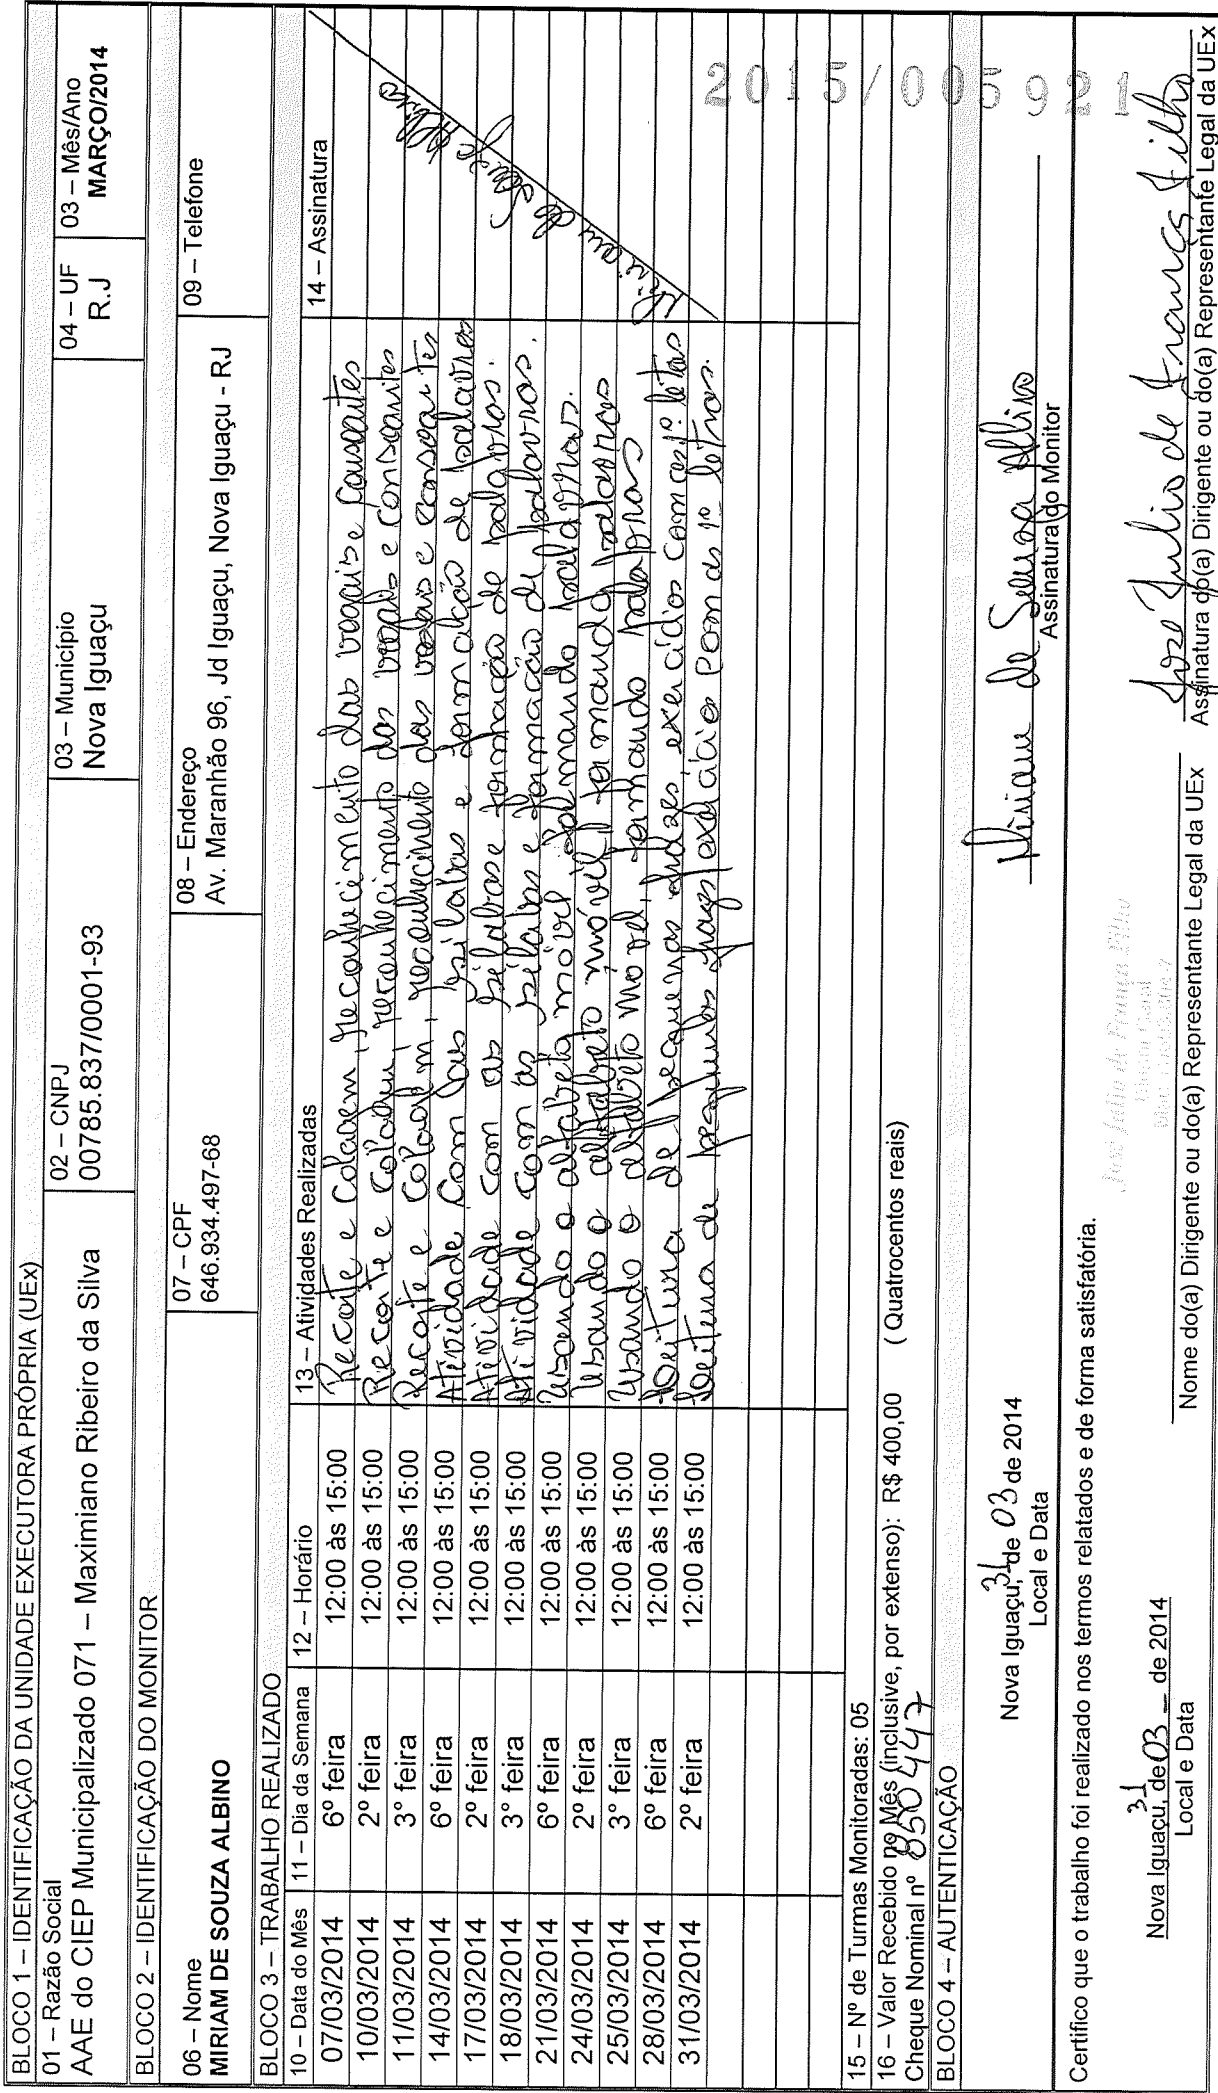 BLOCO 1 – IDENTIFICAÇÃO DA UNIDADE EXECUTORA PRÓPRIA (UEx)
01 – Razão Social
AAE do CIEP Municipalizado 071 – Maximiano Ribeiro da Silva
02 – CNPJ
00785.837/0001-93
03 – Município
Nova Iguaçu
04 – UF
R.J
03 – Mês/Ano
MARÇO/2014
BLOCO 2 – IDENTIFICAÇÃO DO MONITOR
06 – Nome
MIRIAM DE SOUZA ALBINO
07 – CPF
646.934.497-68
08 – Endereço
Av. Maranhão 96, Jd Iguaçu, Nova Iguaçu - RJ
09 – Telefone
BLOCO 3 – TRABALHO REALIZADO
10 – Data do Mês 11 – Dia da Semana 12 – Horário 13 – Atividades Realizadas 14 – Assinatura
07/03/2014 6º feira 12:00 às 15:00 Recorte e Colagem, reconhecimento das vogais e consoantes
10/03/2014 2º feira 12:00 às 15:00 Recorte e Colagem, reconhecimento das vogais e consoantes
11/03/2014 3º feira 12:00 às 15:00 Recorte e Colagem, reconhecimento das vogais e consoantes
14/03/2014 6º feira 12:00 às 15:00 Atividade Com as sílabas e formação de palavras
17/03/2014 2º feira 12:00 às 15:00 Atividade com as sílabas e formação de palavras.
18/03/2014 3º feira 12:00 às 15:00 Atividade com as sílabas e formação de palavras.
21/03/2014 6º feira 12:00 às 15:00 Usando o alfabeto móvel formando palavras.
24/03/2014 2º feira 12:00 às 15:00 Usando o alfabeto móvel formando palavras
25/03/2014 3º feira 12:00 às 15:00 Usando o alfabeto móvel, formando palavras
28/03/2014 6º feira 12:00 às 15:00 Leitura de pequenas frases, exercícios com as 1º letras
31/03/2014 2º feira 12:00 às 15:00 Leitura de pequenas frases exercícios com as 1º letras.
Miriam de Souza Albino
2015/005921
15 – Nº de Turmas Monitoradas: 05
16 – Valor Recebido no Mês (inclusive, por extenso): R$ 400,00 ( Quatrocentos reais)
Cheque Nominal nº 850447
BLOCO 4 – AUTENTICAÇÃO
Nova Iguaçu, 31 de 03 de 2014
Local e Data
Miriam de Souza Albino
Assinatura do Monitor
Certifico que o trabalho foi realizado nos termos relatados e de forma satisfatória.
Nova Iguaçu, 31 de 03 de 2014
Local e Data
José Julio de França Filho
Nome do(a) Dirigente ou do(a) Representante Legal da UEx
Jose Julio de França Filho
Assinatura do(a) Dirigente ou do(a) Representante Legal da UEx